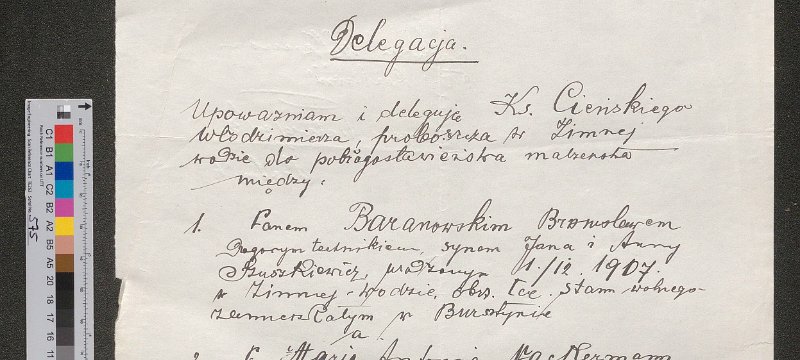 Delegacja.
Upoważniam i deleguję Ks. Cieńskiego
Włodzimierza, proboszcza w Zimnej
wodzie do pobłogosławieństwa małżeństwa
między:
1. Panem Baranowskim Bronisławem
Drogowym technikiem, synem Jana i Anny
Puszkiewicz, urodzonym 1./12. 1907.
w Zimnej-wodzie, obrz. łac. stanu wolnego
zamieszkałym w Bursztynie
a
2. Marją Wackermann
C1 B1 A1 C2 B2 A2 B5 A5 20 18 17 16 11
575